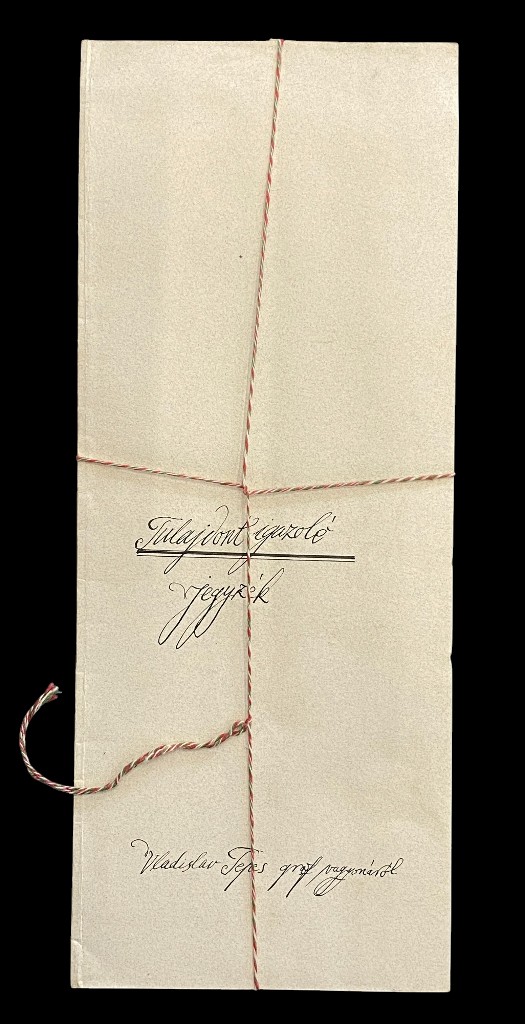 Tulajdont igazoló
jegyzék
Vladislav Tepes gróf vagyonáról